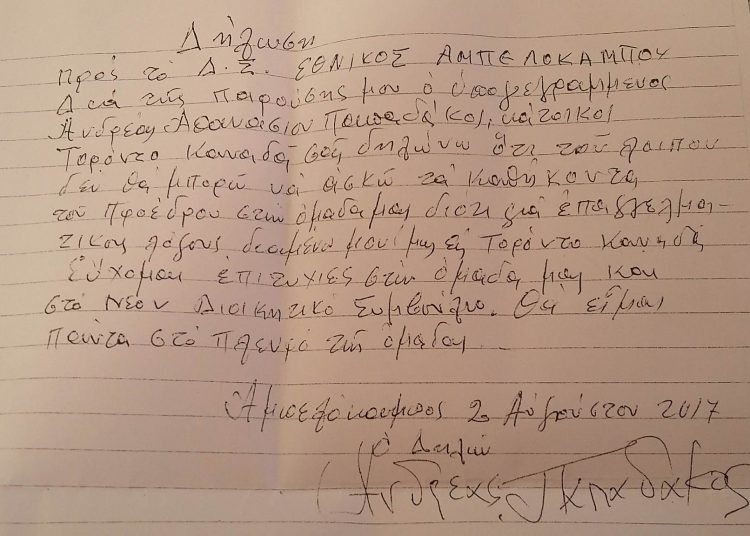 Δήλωση
Πρός τό Δ.Σ. ΕΘΝΙΚΟΣ ΑΜΠΕΛΟΚΑΜΠΟΥ
Διά τής παρούσης μου ό ύπογεγραμμενος
Ανδρέας Αθανάσιου Παπαδάκος, κάτοικος
Τορόντο Καναδά σάς δηλώνω ότι τού λοιπού
δέν θά μπορώ νά άσκώ τά καθήκοντα
του Προέδρου στήν όμάδα μας διότι γιά έπαγγελμα-
τικους λόγους διαμένω μονίμως είς Τορόντο Καναδά
Εύχομαι έπιτυχίες στήν όμάδα μας και
στό Νέον Διοικητικό Συμβούλιο. Θά είμαι
πάντα στό πλευρό τής όμάδας
Αμπελόκαμπος 2 Αύγούστου 2017
Ο Δηλών
Ανδρέας Παπαδάκος